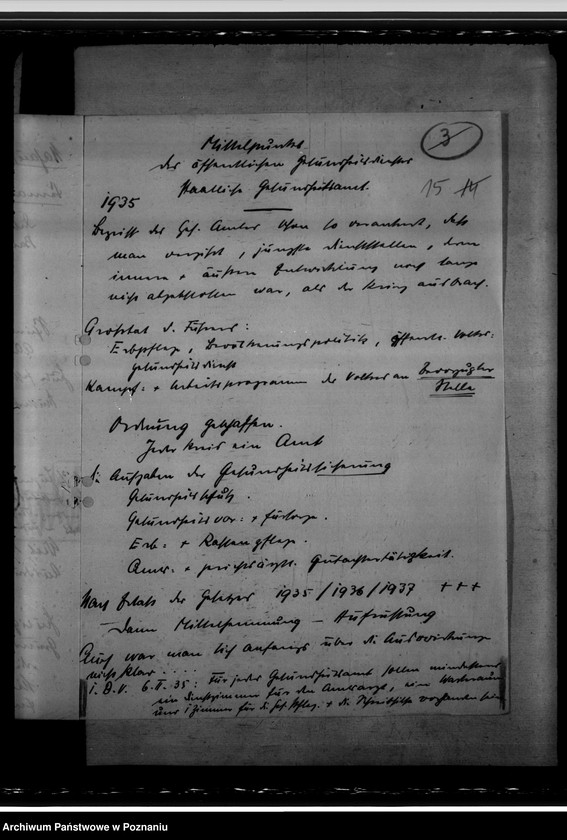 3
15
Mittelpunkt
des öffentlichen Gesundheitsdienstes
Staatliche Gesundheitsamt.
1935
Begriff des Ges. Amtes schon so verankert, daß
man vergißt, jüngste Dienststellen, deren
innere + äußere Entwicklung noch lange
nicht abgeschlossen war, als der Krieg ausbrach.
Großtat d. Führers:
Erbpflege, Bevölkerungspolitik, öffentl. Volks-
gesundheitsdienst
Kampf- + Arbeitsprogramm des Volkes an bevorzugter
Stelle
Ordnung geschaffen.
Jeder Kreis ein Amt
Aufgaben der Gesundheitssicherung
Gesundheitsschutz.
Gesundheitsvor- + fürsorge.
Erb- + Rassenpflege.
Amts- + gerichtsärztl. Gutachtertätigkeit.
Nach Erlaß des Gesetzes 1935/1936/1937 +++
Dann Mittelhemmung – Aufrüstung
Auch war man sich anfangs über die Auswirkungen
nicht klar .....
1. D.V. 6.II.35: Für jedes Gesundheitsamt sollen mindestens
ein Dienstzimmer für den Amtsarzt, ein Warteraum
und 1 Zimmer für die + die Schreibhilfe vorhanden sein
Archiwum Państwowe w Poznaniu